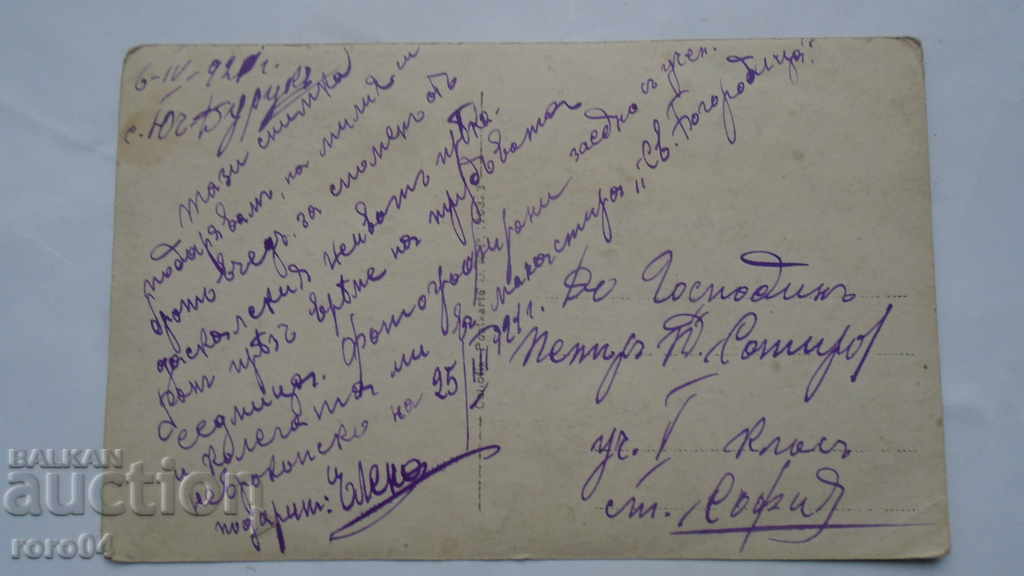 6-IV-921 г.
с. Юч Дурукъ
Тази снимка
подарявамъ, на милия и
братовчедъ, за споменъ отъ
даскалския животъ прека-
ранъ презъ време на трудовата
седмица. Фотографирани заедно съ учен.
и колегата ми въ манастиря "Св. Богородица".
Неврокопско на 25 921 г.
подарит: Елена
До Господинъ
Петъръ Д. Сотиров
уч. I класъ
гт. София
BALKAN
auction
roro04